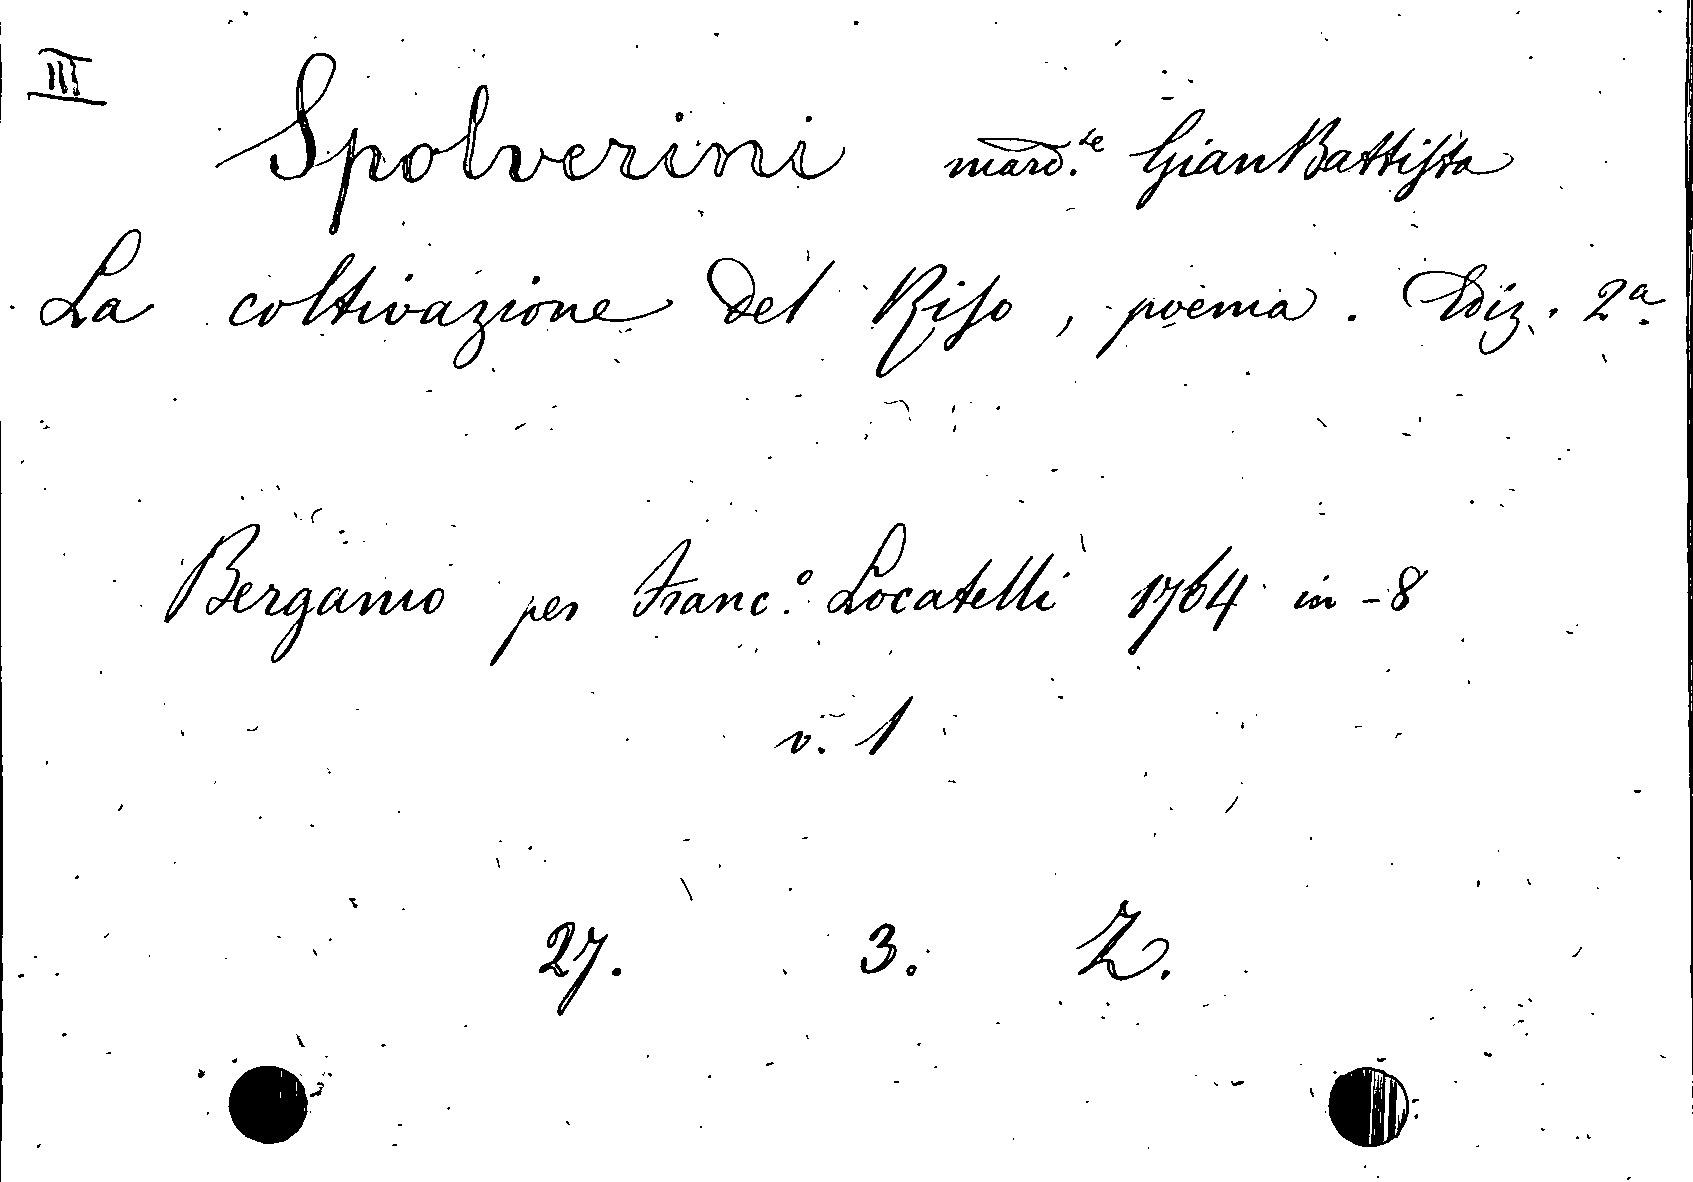 III
Spolverini marc.se GianBattista
La coltivazione del Riso, poema. Ediz. 2a.
Bergamo per Franc.o Locatelli 1764 in-8
v. 1
27. 3. Z.